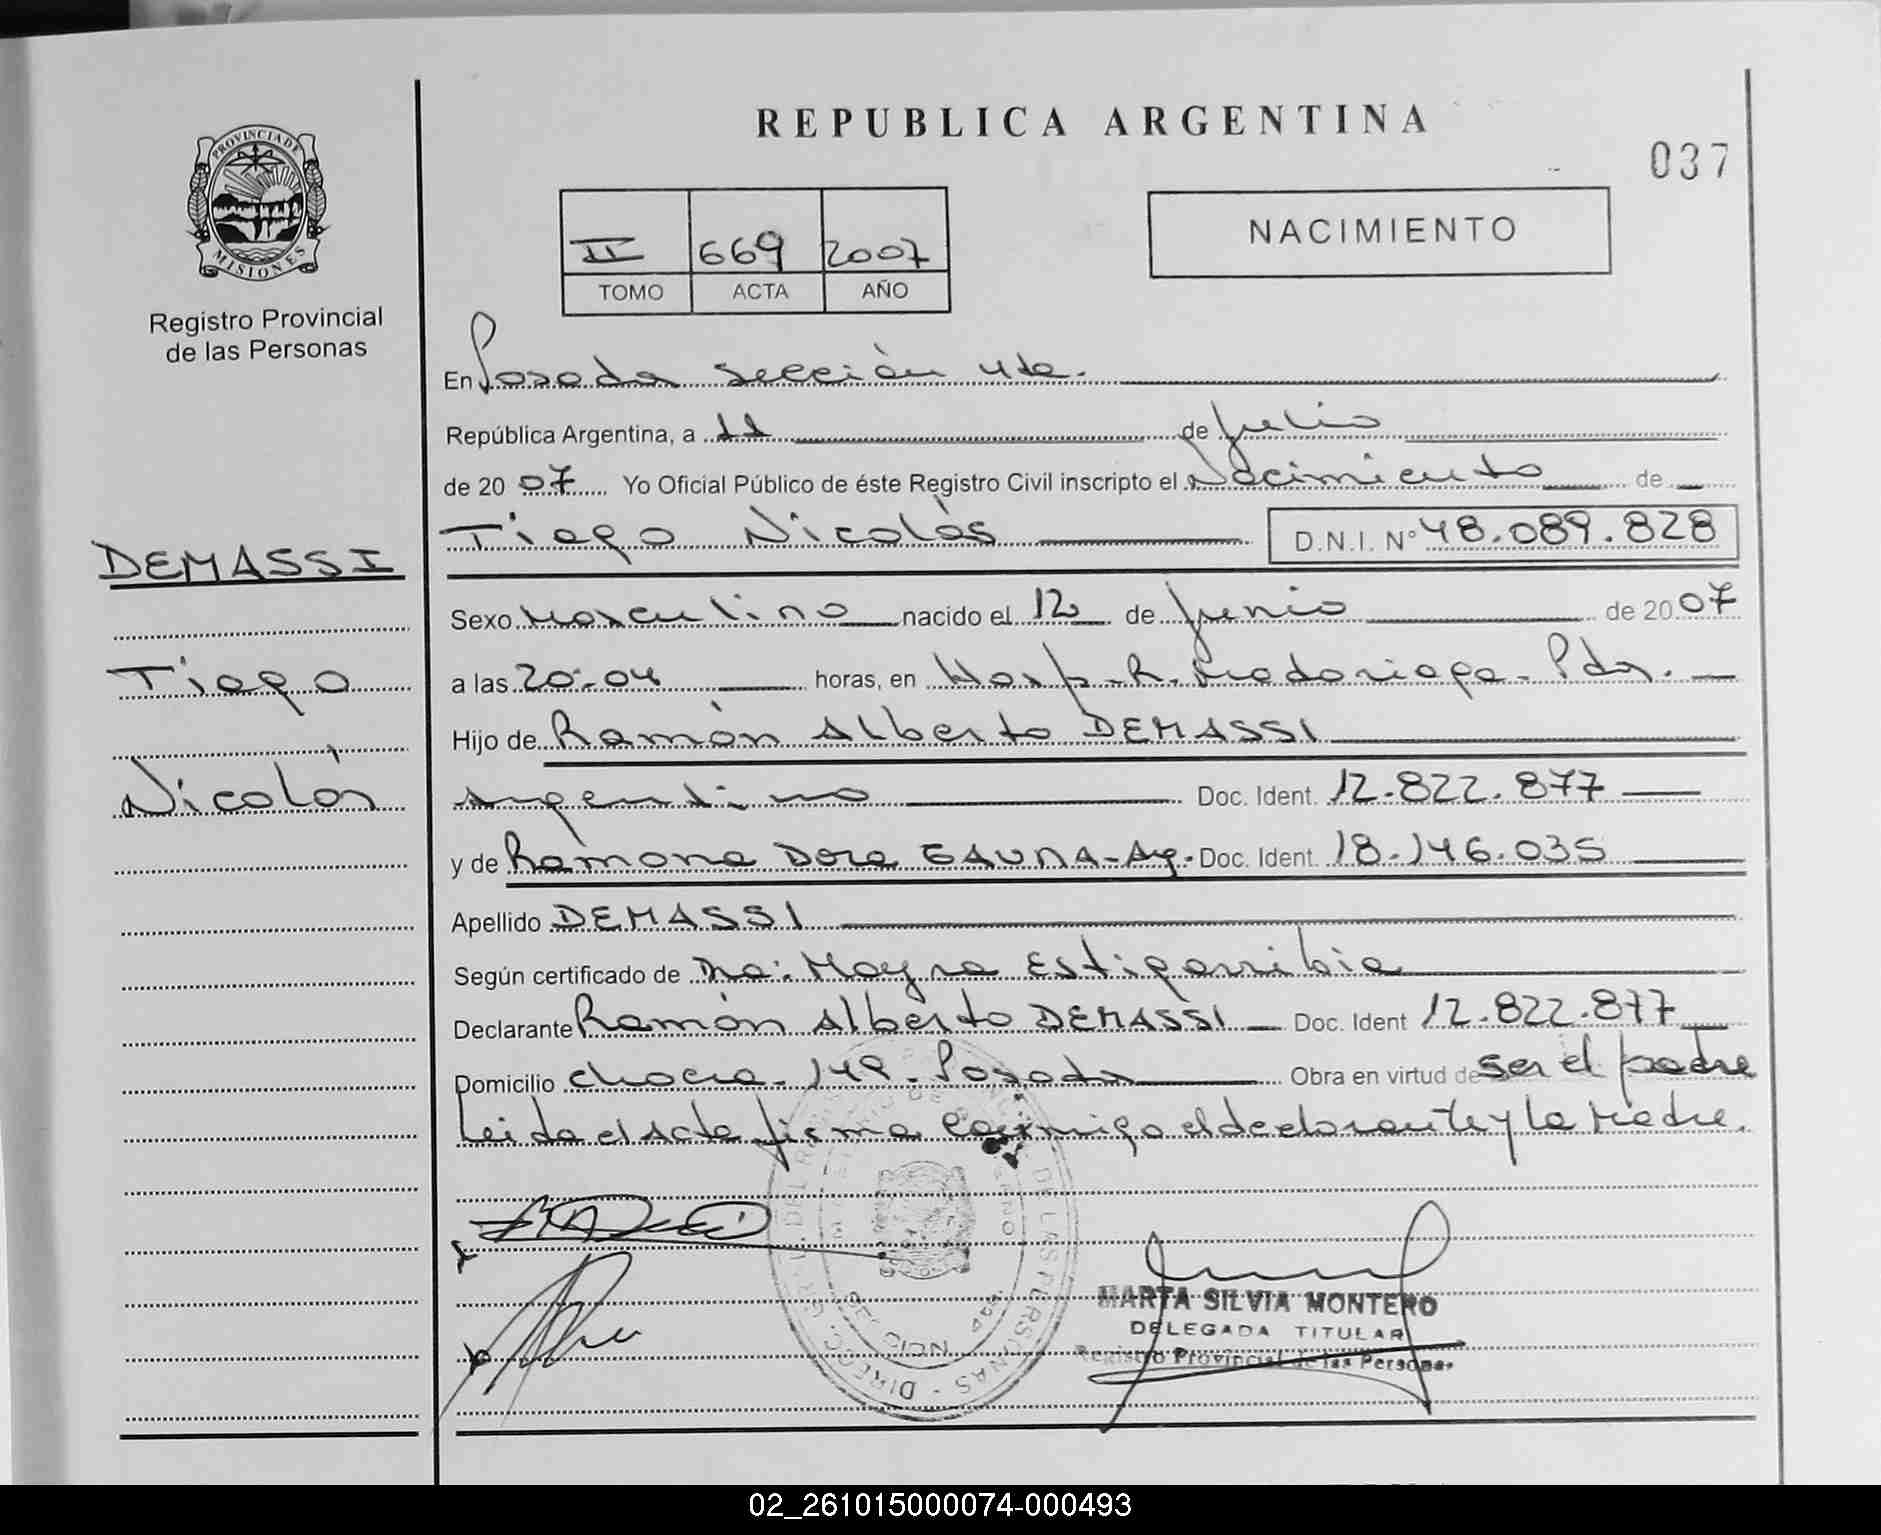 REPUBLICA ARGENTINA
037
PROVINCIA DE MISIONES
Registro Provincial
de las Personas
II 669 2007
TOMO ACTA AÑO
NACIMIENTO
En Posadas sección 4ta.
República Argentina, a 11 de julio
de 2007 Yo Oficial Público de éste Registro Civil inscripto el Nacimiento de
Tiago Nicolás D.N.I. Nº 48.089.828
DEMASSI
Tiago
Nicolás
Sexo Masculino nacido el 12 de junio de 2007
a las 20:04 horas, en Hosp. R. Madariaga. Pdas.
Hijo de Ramón Alberto DEMASSI
Argentino Doc. Ident. 12.822.877
y de Ramona Dora GAUNA-Ag. Doc. Ident. 18.146.035
Apellido DEMASSI
Según certificado de Dra: Mayra Estigarribia
Declarante Ramón Alberto DEMASSI Doc. Ident 12.822.877
Domicilio chacra. 149. Posadas Obra en virtud de ser el padre
Leida el Acta firma conmigo el declarante y la Madre.
MARTA SILVIA MONTERO
DELEGADA TITULAR
Registro Provincial de las Personas
02_261015000074-000493